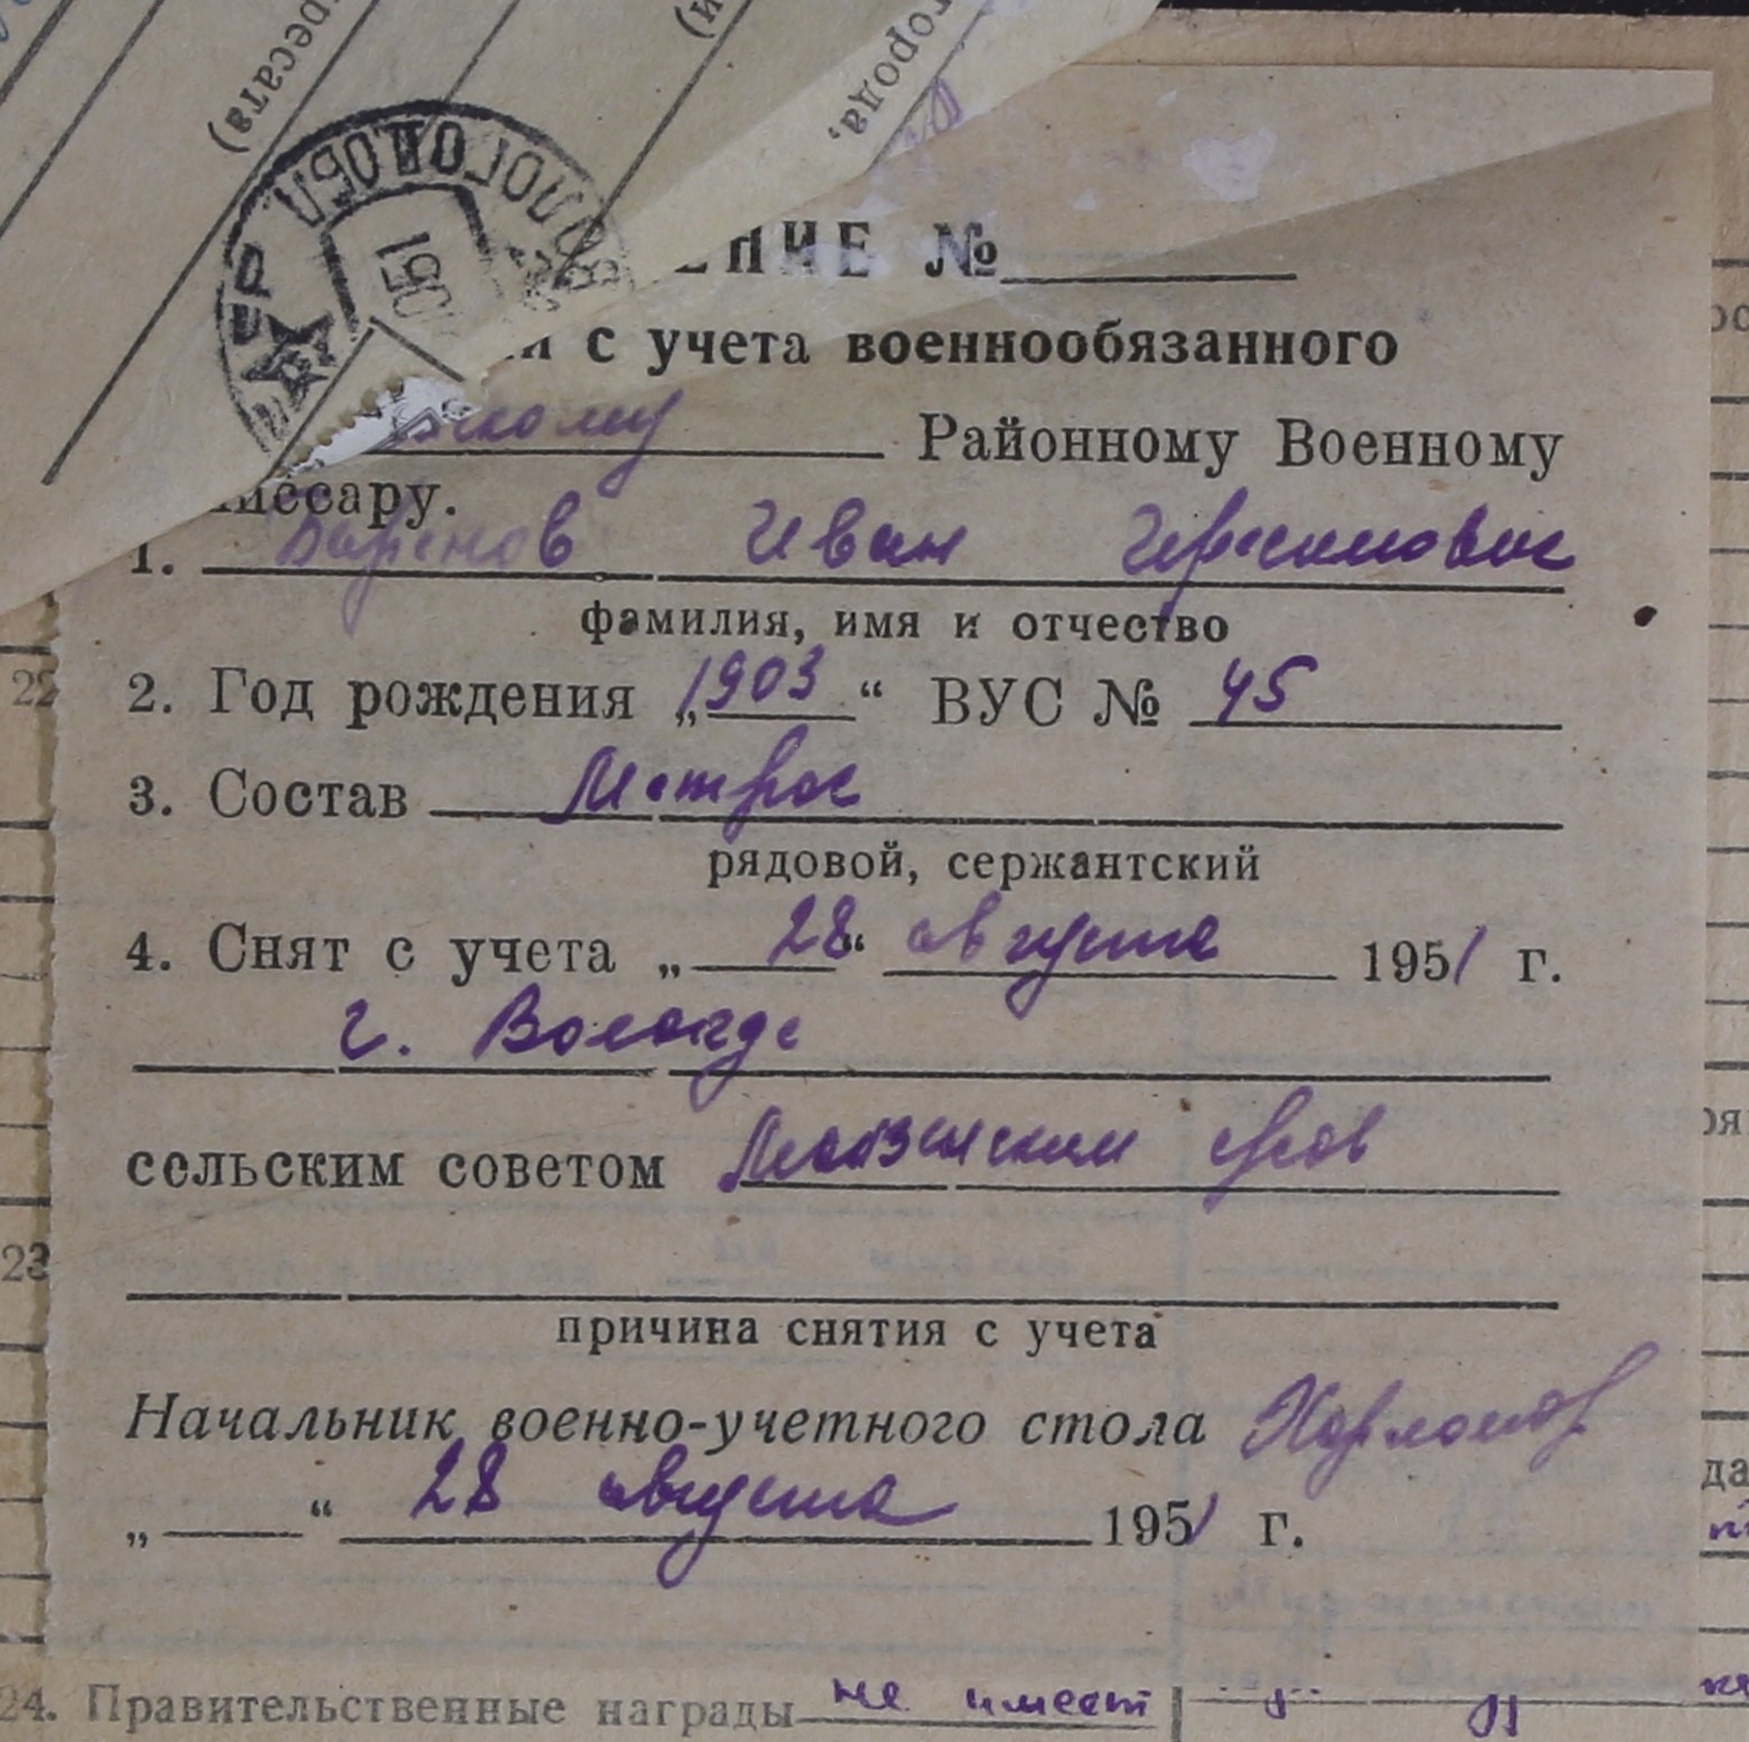 ресата)
города,
ЕНИЕ №
с учета военнообязанного
скому Районному Военному
миссару.
1. Баринов Иван Герасимович
фамилия, имя и отчество
2. Год рождения „1903“ ВУС № 45
3. Состав Матрос
рядовой, сержантский
4. Снят с учета „28“ августа 1951 г.
г. Вологде
сельским советом
причина снятия с учета
Начальник военно-учетного стола
„ “ 28 августа 1951 г.
22
23
24. Правительственные награды не имеет